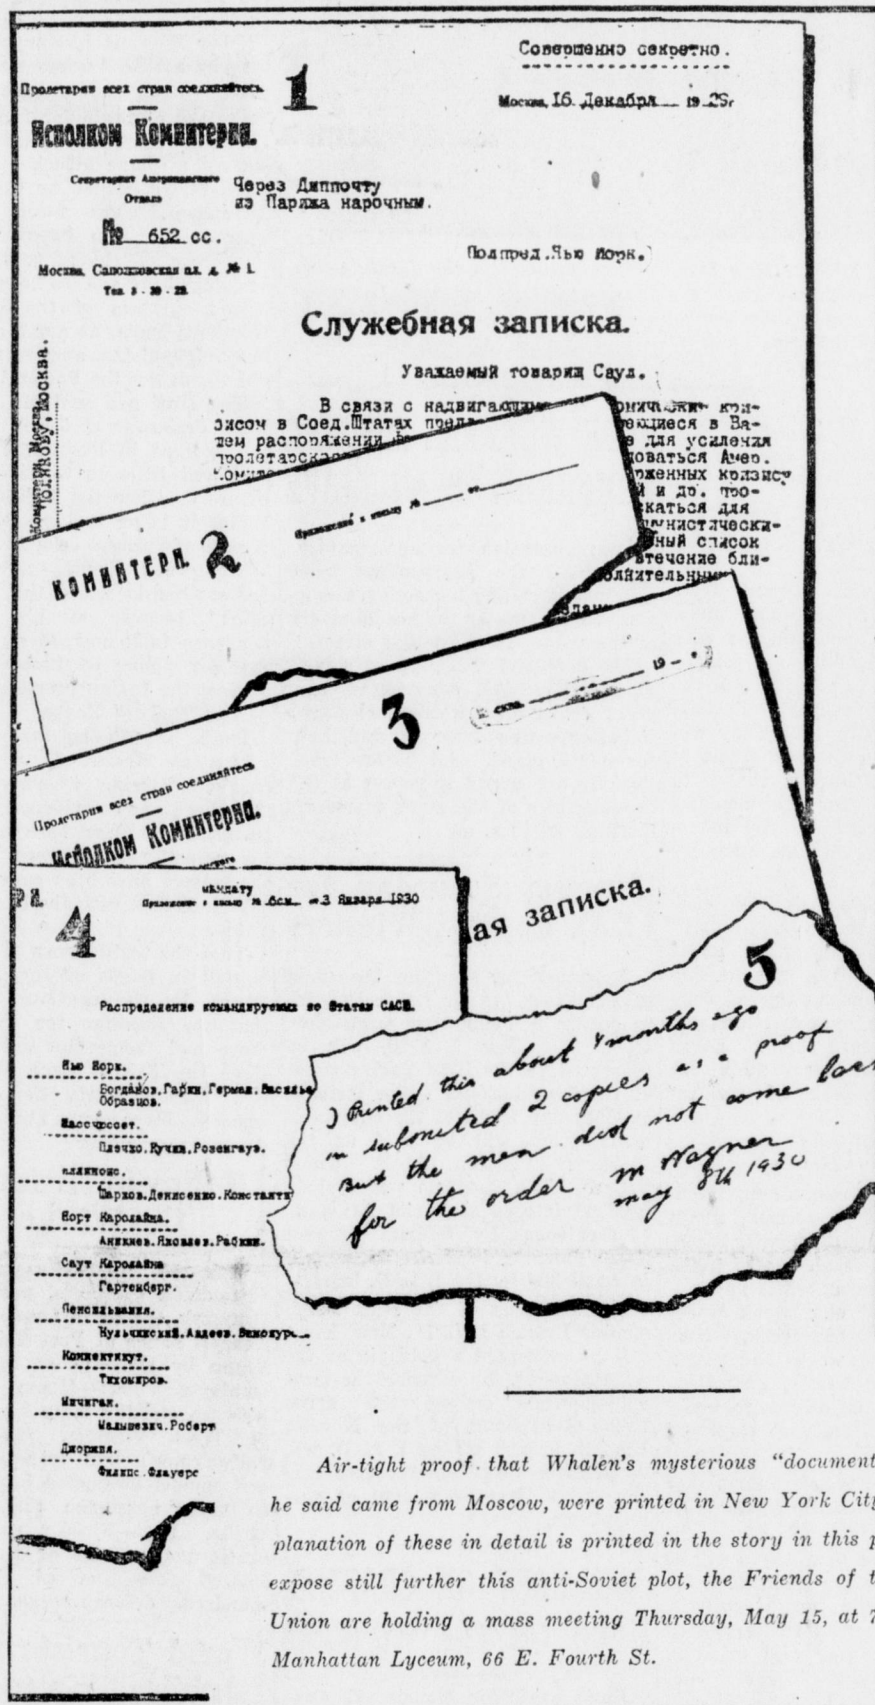 Совершенно секретно.
Пролетарии всех стран соединяйтесь.
1
Москва, 16 Декабря 19 29г
Исполком Коминтерна.
Секретариат Американского
Отдела
Через Диппочту
из Парижа нарочным.
№ 652 сс.
Полпред.Нью Йорк.
Москва, Сапожковская пл. д. № 1.
Тел. 3-30-23.
Служебная записка.
Уважаемый товарищ Саул.
В связи с надвигающимс кри-
зисом в Соед.Штатах ющиеся в Ва-
шем распоряжении е для усиления
пролетарско доваться Амер.
Комите рженных кризису
й и др. про-
скаться для
мунистически-
ный список
втечение бли-
олнительными
КОМИНТЕРН.
2
Приложение к письму № от
3
19
Пролетарии всех стран соединяйтесь
Исполком Коминтерна.
ая записка.
РН.
4
мандату
Приложение к письму № от 3 Января 1930
5
Распределение командируемых по Штатам САСШ.
Нью Йорк.
Богданов.Гарин.Герман.Василье
Образцов.
Массчусет.
Плечко.Кучин.Розенгауз.
Иллинойс.
Шархов.Денисенко.Константи
Норт Каролайна.
Аникиев.Яковлев.Рабкин.
Саут Каролайна
Гартенберг.
Пенсильвания.
Кульчинский.Авдеев.Винокур
Коннектикут.
Тихомиров.
Мичиган.
Малышевич.Роберт
Джоржия.
Филипс.Флауерс
I Printed this about 4 months ago
submited 2 copies as a proof
But the men did not come back
for the order M Wagner
may 8th 1930
Air-tight proof that Whalen's mysterious "document
he said came from Moscow, were printed in New York City
planation of these in detail is printed in the story in this p
expose still further this anti-Soviet plot, the Friends of t
Union are holding a mass meeting Thursday, May 15, at 7
Manhattan Lyceum, 66 E. Fourth St.